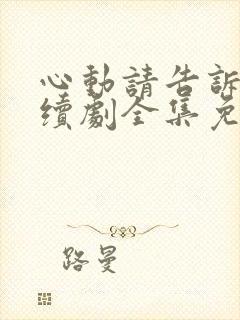 心動請告訴
續劇全集免
路曼